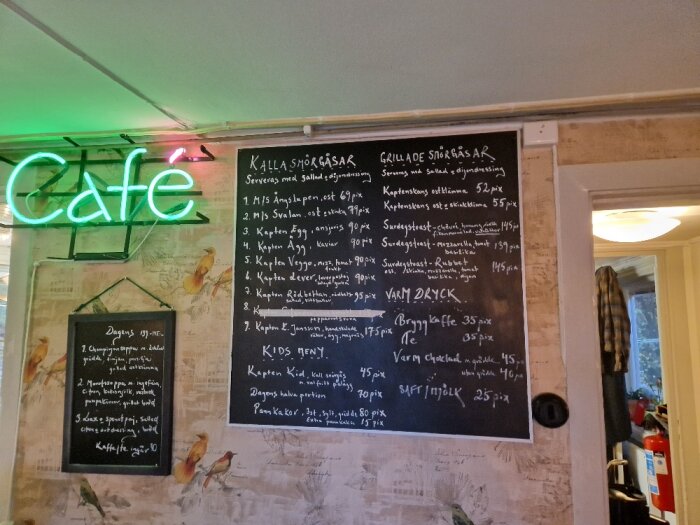 Café
KALLA SMÖRGÅSAR
Serveras med sallad + dijondressing
1. M/S Ångslupen, ost 69 pix
2. M/S Svalan, ost + skinka 79 pix
3. Kapten Egg, ansjovis 90 pix
4. Kapten Ägg, kaviar 90 pix
5. Kapten Veggo, tomat 90 pix
frukt
6. Kapten Lever, leverpastej 90 pix
7. Kapten Rödbettan, 95 pix
8.
pepparrotssås
9. Kapten E. Jansson, handskalade 175 pix
räkor, ägg, majonäs
KIDS MENY
Kapten Kid, kall smörgås 45 pix
m. valfritt pålägg
Dagens halva portion 70 pix
Pannkakor, 3st, sylt, grädde 80 pix
Extra pannkaka 15 pix
GRILLADE SMÖRGÅSAR
Serveras med sallad + dijondressing
Kaptenskans ostklämma 52 pix
Kaptenskans ost + skinkklämma 55 pix
Surdegstoast - 145 pix
Surdegstoast - mozzarella, tomat 139 pix
basilika
Surdegstoast - Rubbet 145 pix
ost, skinka, mozzarella, tomat
basilika, dijon
VARM DRYCK
Bryggkaffe 35 pix
Te 35 pix
Varm choklad m. grädde 45 pix
utan grädde 40 pix
SAFT/MJÖLK 25 pix
Dagens
1. Champinjonsoppa m.
grädde, timjan, persilja
grillad ostklämma
2.
citron,
pumpakärnor, grillat bröd
3. Lax + spenatpaj, sallad,
citron, bröd
Kaffe/te ingår